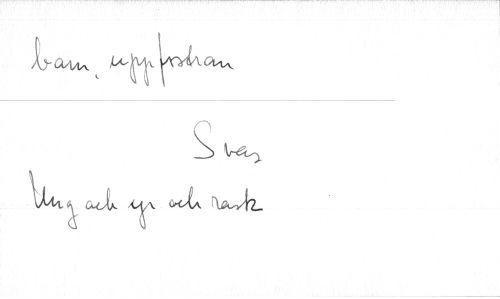 barn, uppfostran
Sven
Ung och yr och rask